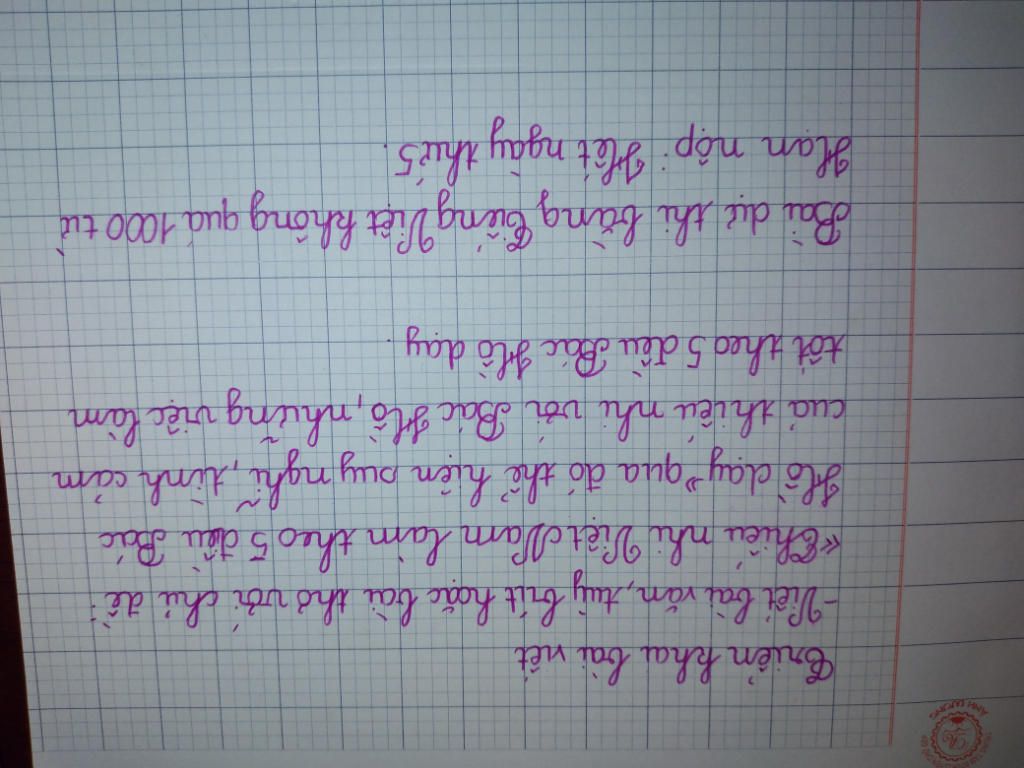 Triển khai bài viết
- Viết bài văn, tuỳ bút hoặc bài thơ với chủ đề:
"Thiếu nhi Việt Nam làm theo 5 điều Bác
Hồ dạy" qua đó thể hiện suy nghĩ, tình cảm
của thiếu nhi với Bác Hồ, những việc làm
tốt theo 5 điều Bác Hồ dạy.
Bài dự thi bằng Tiếng Việt không quá 1000 từ
Hạn nộp: Hết ngày thứ 5.